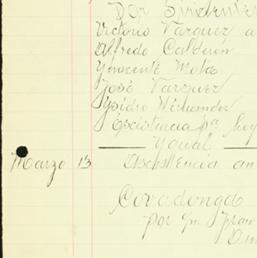 Por Sirvientes
Victorio Vazquez a
Alfredo Calderón
Ynocente Mota
José Vazquez
Ysidro
Existencia pª hoy
Marzo 13 Existencia an
Covadonga
por